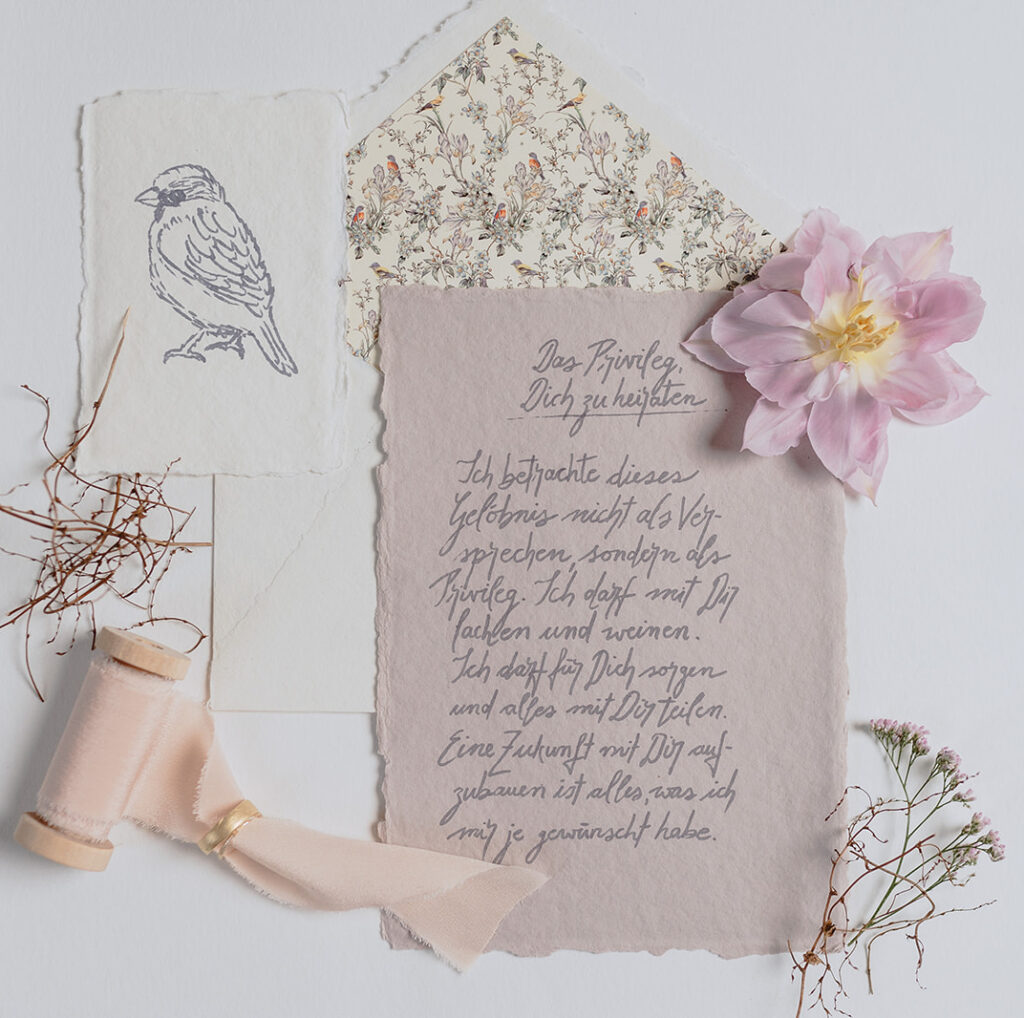 Das Privileg,
Dich zu heiraten
Ich betrachte dieses
Gelöbnis nicht als Ver-
sprechen, sondern als
Privileg. Ich darf mit Dir
lachen und weinen.
Ich darf für Dich sorgen
und alles mit Dir teilen.
Eine Zukunft mit Dir auf-
zubauen ist alles, was ich
mir je gewünscht habe.